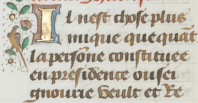 Il nest chose plus
inique que quāt
la persōne constituee
en presidence ou sei
gnourie veult et re